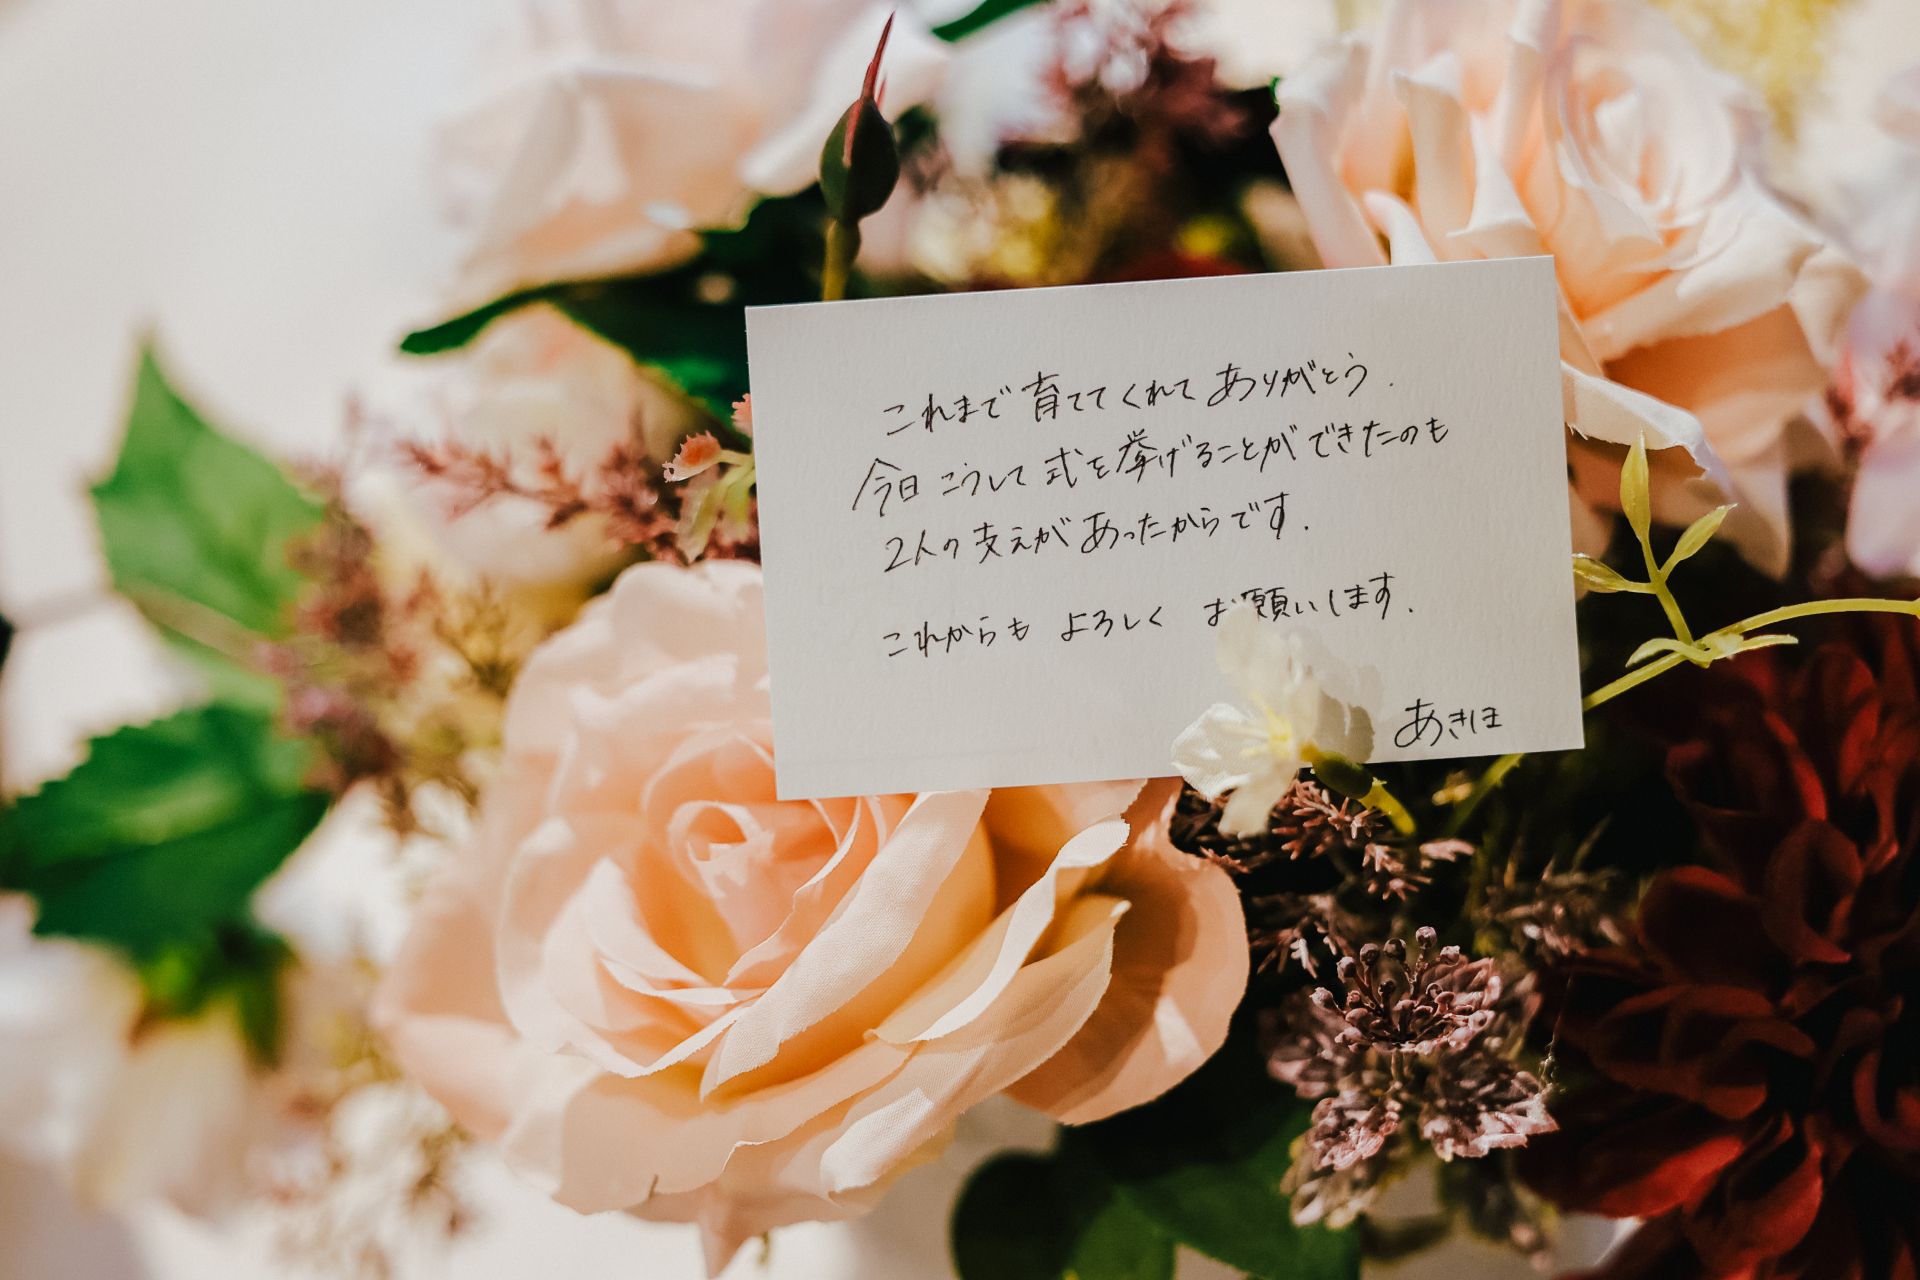 これまで育ててくれてありがとう.
今日こうして式を挙げることができたのも
2人の支えがあったからです.
これからも よろしく お願いします.
あきほ